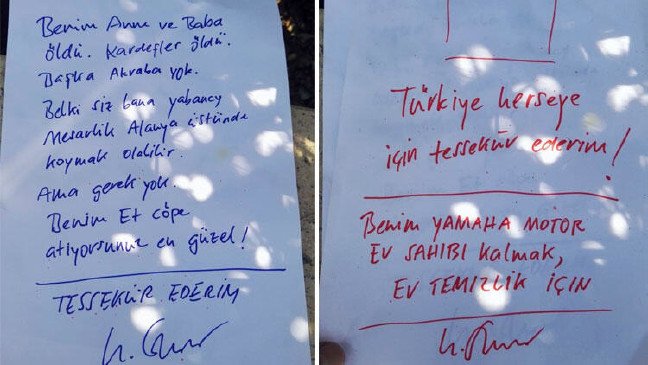 Benim Anne ve Baba
öldü. Kardeşler öldü.
Başka Akraba yok.
Belki siz bana yabancy
Mesarlik Alanya üstünde
koymak olabilir.
Ama gerek yok.
Benim Et çöpe
atiyorsunuz en güzel!
TESSEKÜR EDERIM
Türkiye herseye
için tessekür ederim!
Benim YAMAHA MOTOR
EV SAHIBI kalmak,
EV TEMIZLIK IÇIN